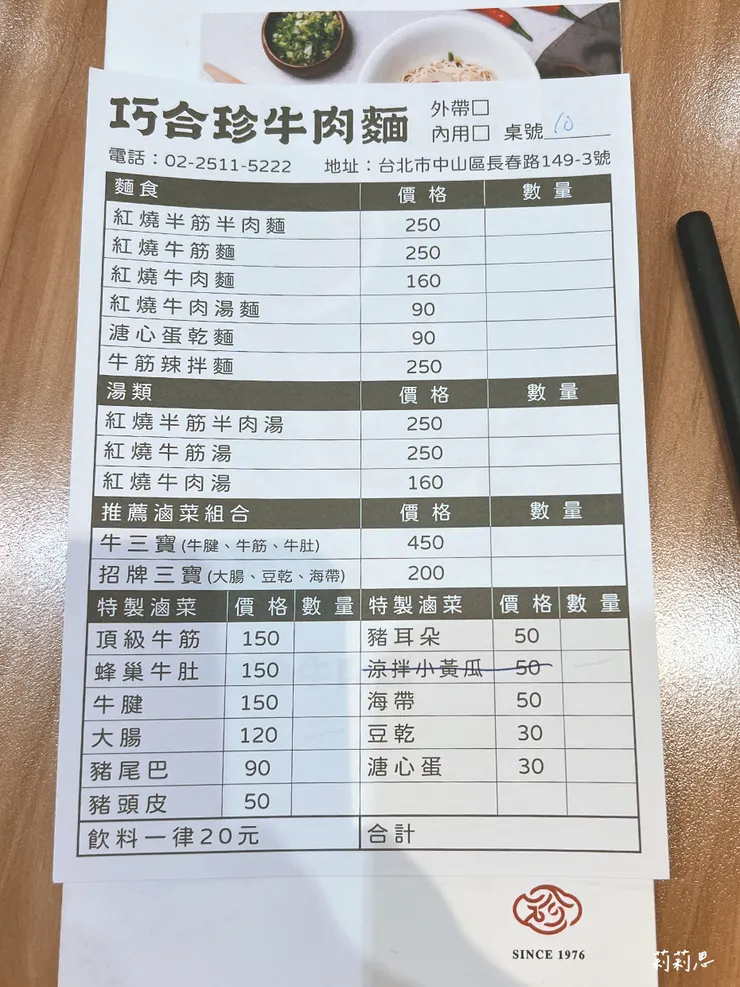 巧合珍牛肉麵
外帶□
內用□ 桌號 10
電話：02-2511-5222 地址：台北市中山區長春路149-3號
麵食 價格 數量
紅燒半筋半肉麵 250
紅燒牛筋麵 250
紅燒牛肉麵 160
紅燒牛肉湯麵 90
溏心蛋乾麵 90
牛筋辣拌麵 250
湯類 價格 數量
紅燒半筋半肉湯 250
紅燒牛筋湯 250
紅燒牛肉湯 160
推薦滷菜組合 價格 數量
牛三寶(牛腱、牛筋、牛肚) 450
招牌三寶(大腸、豆乾、海帶) 200
特製滷菜 價格 數量 特製滷菜 價格 數量
頂級牛筋 150 豬耳朵 50
蜂巢牛肚 150 涼拌小黃瓜 50
牛腱 150 海帶 50
大腸 120 豆乾 30
豬尾巴 90 溏心蛋 30
豬頭皮 50
飲料一律20元 合計
珍
SINCE 1976
莉莉思